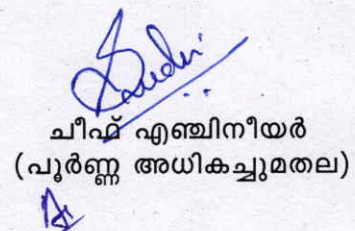 ചീഫ് എഞ്ചിനീയർ
(പൂർണ്ണ അധികച്ചുമതല)